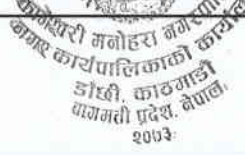 कागेश्वरी मनोहरा नगरपालिका
नगर कार्यपालिकाको कार्यालय
डाँछी, काठमाडौं
बागमती प्रदेश, नेपाल
२०७३